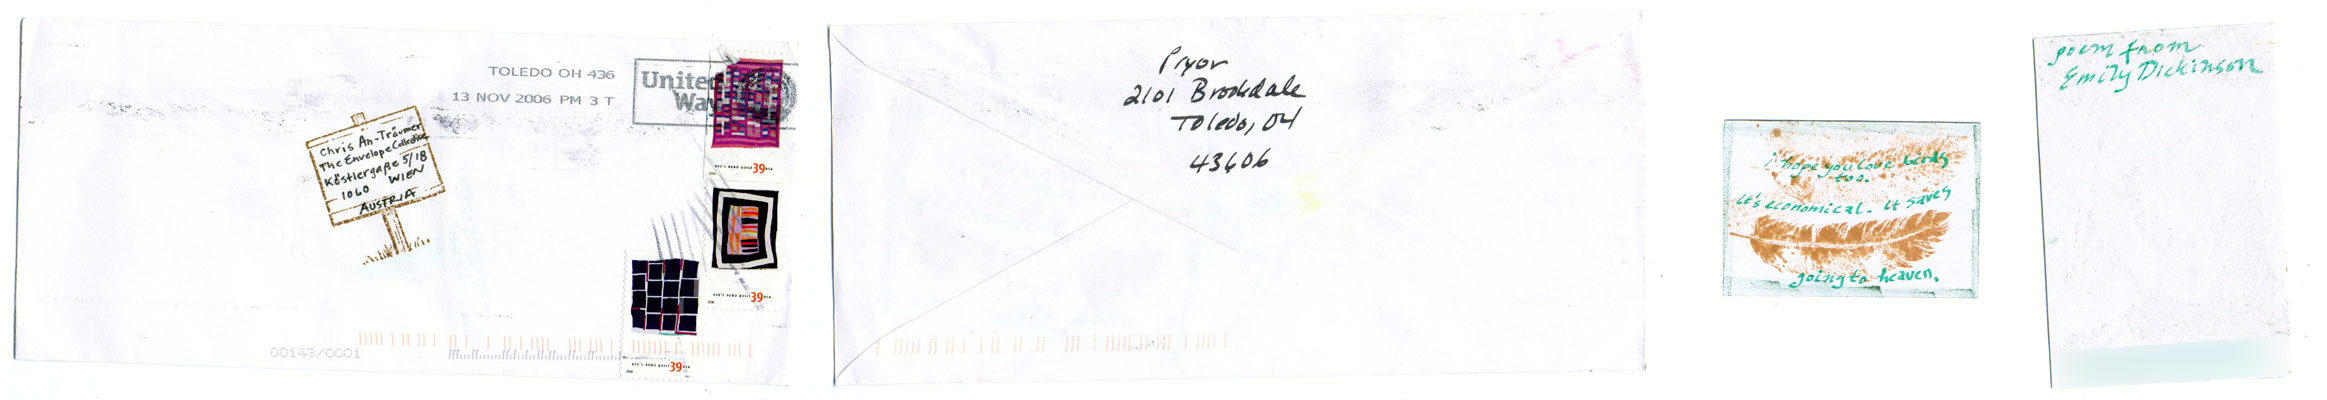 TOLEDO OH 436
13 NOV 2006 PM 3 T
United
Way
Chris An-Träumer
The Envelope Collective
Köstlergaße 5/18
1060 WIEN
AUSTRIA
39
39
39
00143/0001
Pryor
2101 Brookdale
Toledo, OH
43606
i hope you love birds
too.
it's economical. it saves
going to heaven.
poem from
Emily Dickinson